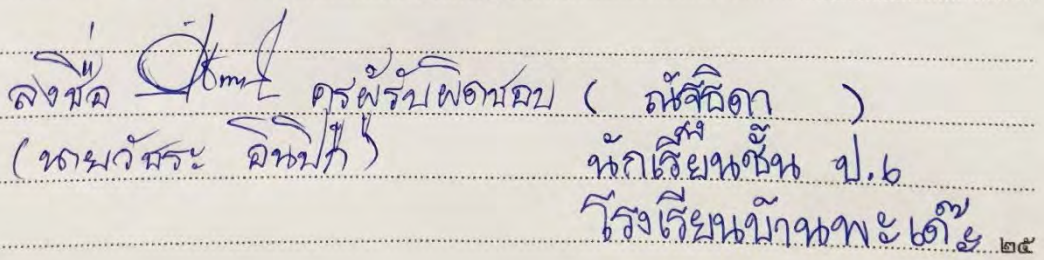 ลงชื่อ ครูผู้รับผิดชอบ ( ณัฐธิดา )
(นายวัชระ อินปัก) นักเรียนชั้น ป.๖
โรงเรียนบ้านพะเด๊ะ ๒๕